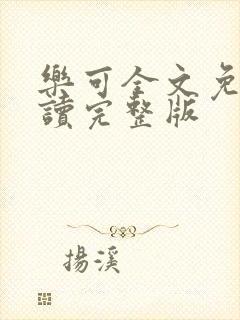 樂可全文免
讀完整版
揚溪